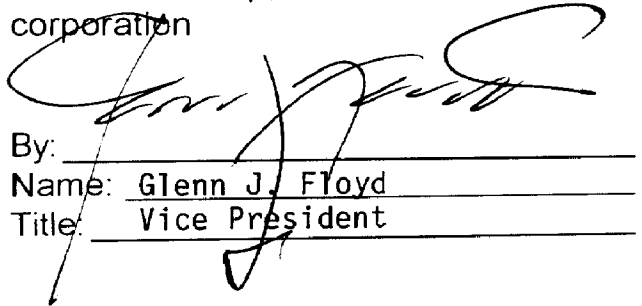 corporation
By:
Name: Glenn J. Floyd
Title: Vice President